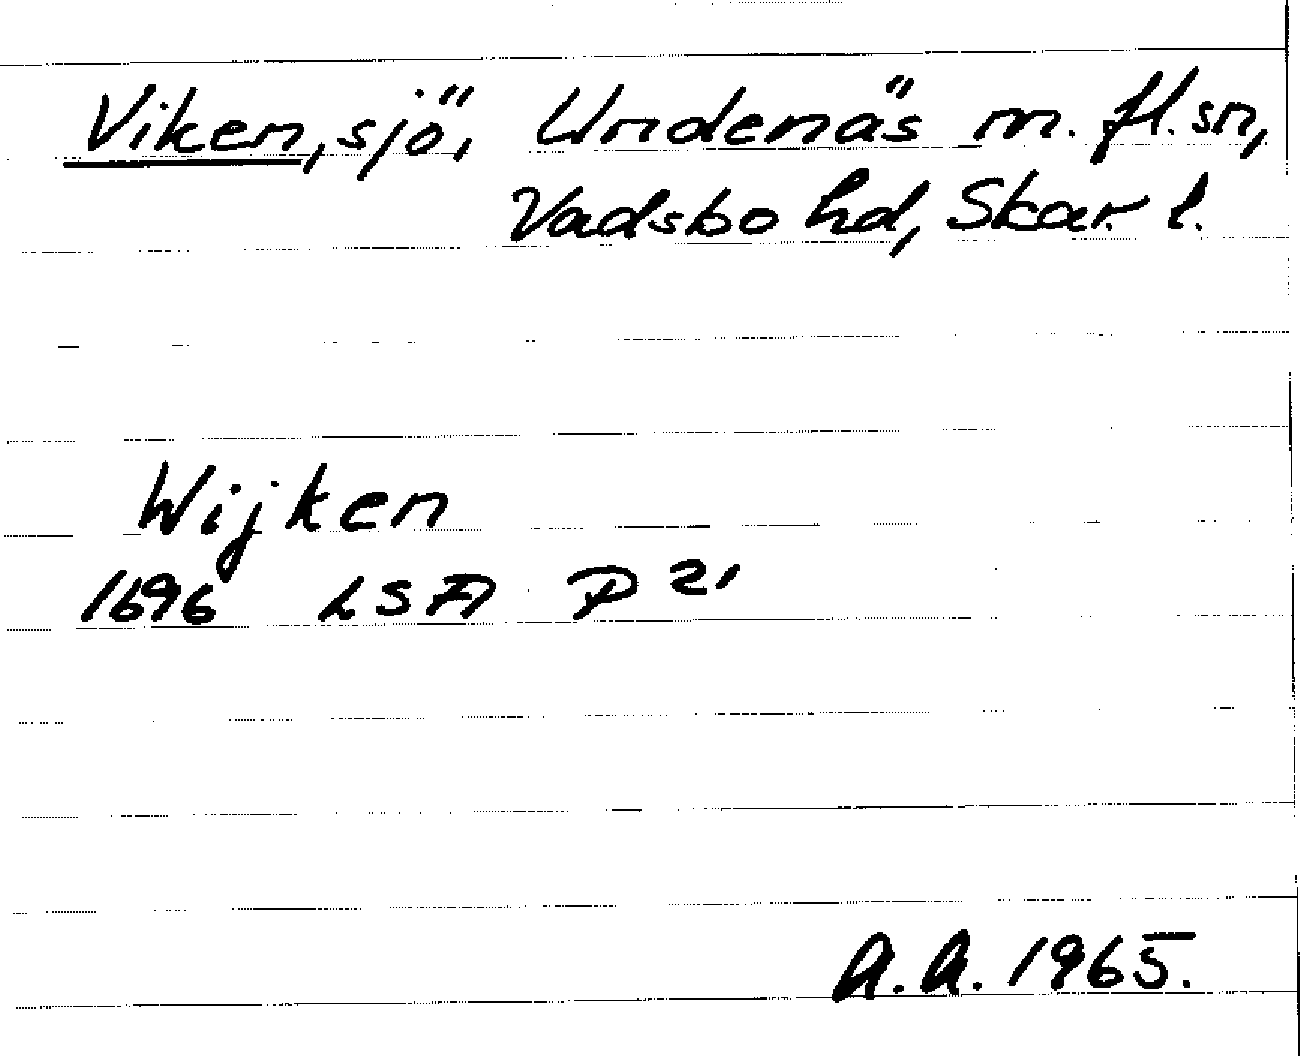 Viken, sjö, Undenäs m. fl. sn,
Vadsbo hd, Skar. l.
Wijken
1696 LSA P 21
A.A. 1965.